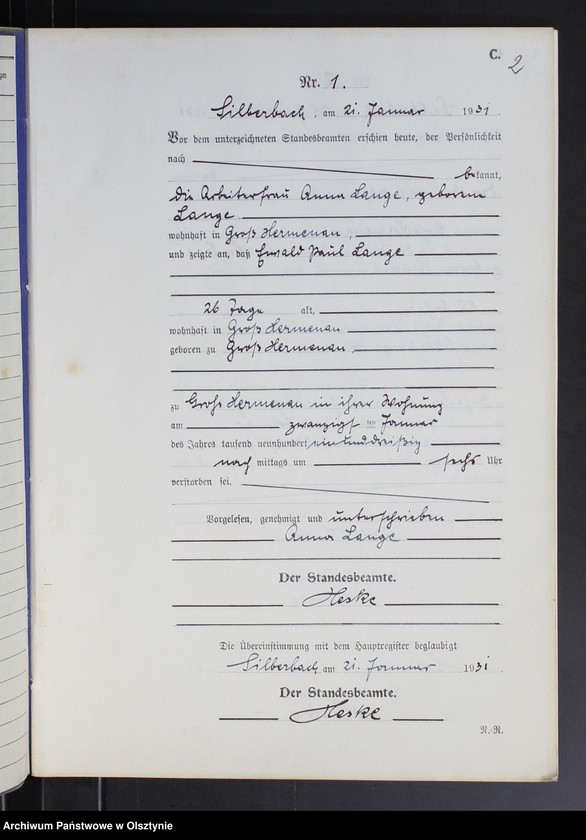 C. 2
Nr. 1.
Silberbach, am 21. Januar 1931
Vor dem unterzeichneten Standesbeamten erschien heute, der Persönlichkeit
nach bekannt,
die Arbeiterfrau Anna Lange, geborene
Lange
wohnhaft in Groß Hermenau,
und zeigte an, daß Ewald Paul Lange
26 Tage alt,
wohnhaft in Groß Hermenau
geboren zu Groß Hermenau,
zu Groß Hermenau in ihrer Wohnung
am zwanzigsten Januar
des Jahres tausend neunhundert einunddreißig
nach mittags um sechs Uhr
verstorben sei.
Vorgelesen, genehmigt und unterschrieben
Anna Lange
Der Standesbeamte.
Heske
Die Übereinstimmung mit dem Hauptregister beglaubigt
Silberbach, am 21. Januar 1931
Der Standesbeamte.
Heske
N.-R.
Archiwum Państwowe w Olsztynie